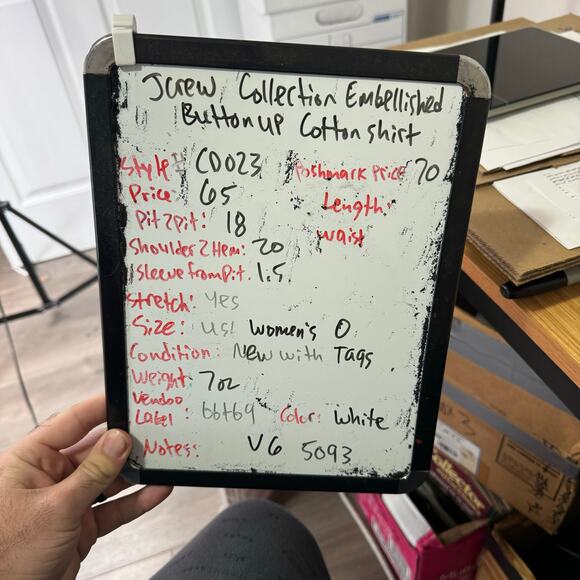 Jcrew Collection Embellished
Button up Cotton shirt
Style# CD023 Poshmark Price 70
Price: 65 Length:
Pit 2 pit: 18 waist
Shoulder 2 Hem: 20
Sleeve from Pit. 1.5
stretch: yes
Size: US! Women's 0
Condition: New with Tags
Weight: 7oz
Vendoo
Label: 66469 Color: White
Notes: V6 5093